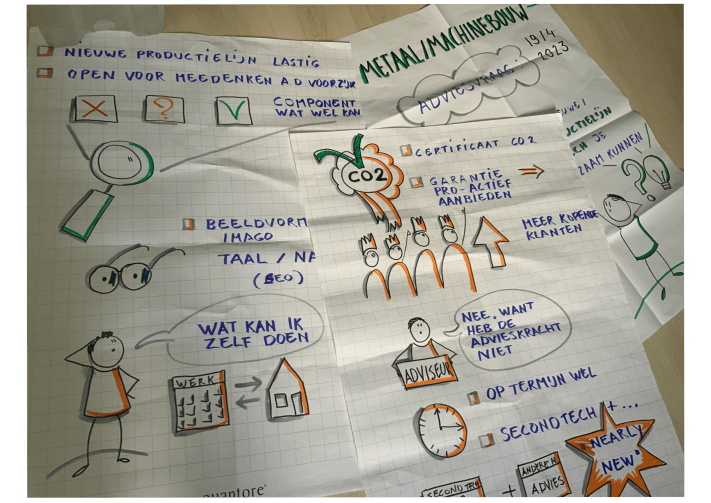 NIEUWE PRODUCTIELIJN LASTIG
OPEN VOOR MEEDENKEN A.D VOORZIJ
COMPONENT
WAT WEL KAN
BEELDVORM
IMAGO
TAAL / NA
(SEO)
WAT KAN IK
ZELF DOEN
WERK
quantore
METAAL/MACHINEBOUW
19/4
2023
ADVIESVRAAG:
EUWE!
UCTIELIJN
EN JE
ZAAM KUNNEN
CERTIFICAAT CO2
CO2
GARANTIE
PRO-ACTIEF
AANBIEDEN
MEER KOPENDE
KLANTEN
NEE, WANT
HEB DE
ADVIESKRACHT
NIET
ADVISEUR
OP TERMIJN WEL
SECONDTECH + ...
"NEARLY
NEW"
SECOND TECH
+
ANDEREN
ADVIES